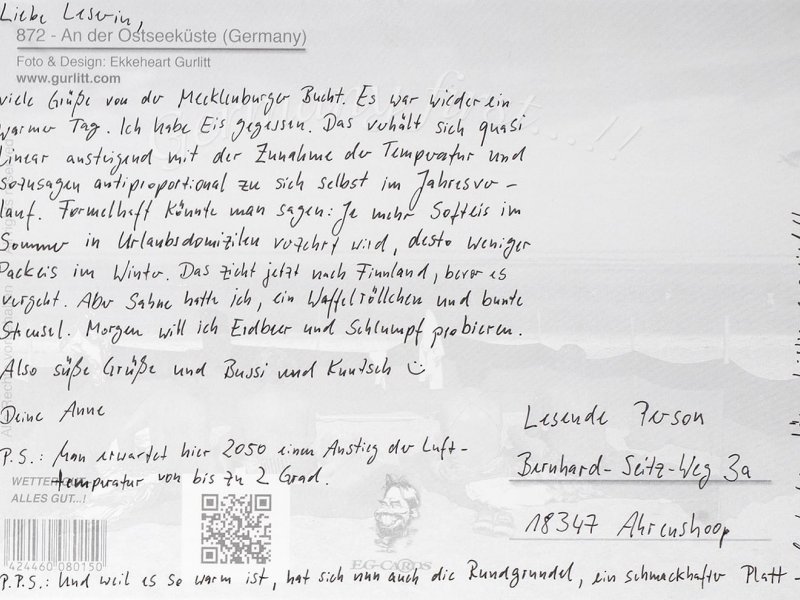 Liebe Leserin,
872 - An der Ostseeküste (Germany)
Foto & Design: Ekkeheart Gurlitt
www.gurlitt.com
viele Grüße von der Mecklenburger Bucht. Es war wieder ein
warmer Tag. Ich habe Eis gegessen. Das verhält sich quasi
Linear ansteigend mit der Zunahme der Temperatur und
sozusagen antiproportional zu sich selbst im Jahresver-
lauf. Formelhaft könnte man sagen: Je mehr Softeis im
Sommer in Urlaubsdomizilen verzehrt wird, desto weniger
Packeis im Winter. Das zieht jetzt nach Finnland, bevor es
vergeht. Aber Sahne hatte ich, ein Waffelröllchen und bunte
Streusel. Morgen will ich Erdbeer und Schlumpf probieren.
Also süße Grüße und Bussi und Knutsch
Deine Anne
P.S.: Man erwartet hier 2050 einen Anstieg der Luft-
temperatur von bis zu 2 Grad.
WETTER
ALLES GUT...!
424460 080150
EG-CARDS
Lesende Person
Bernhard-Seitz-Weg 3a
18347 Ahrenshoop
P.P.S.: Und weil es so warm ist, hat sich nun auch die Rundgrundel, ein schmackhafter Platt-